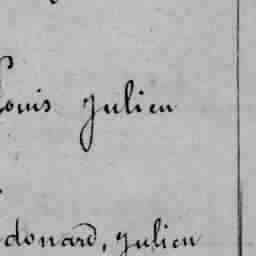 Louis Julien
Edouard, Julien